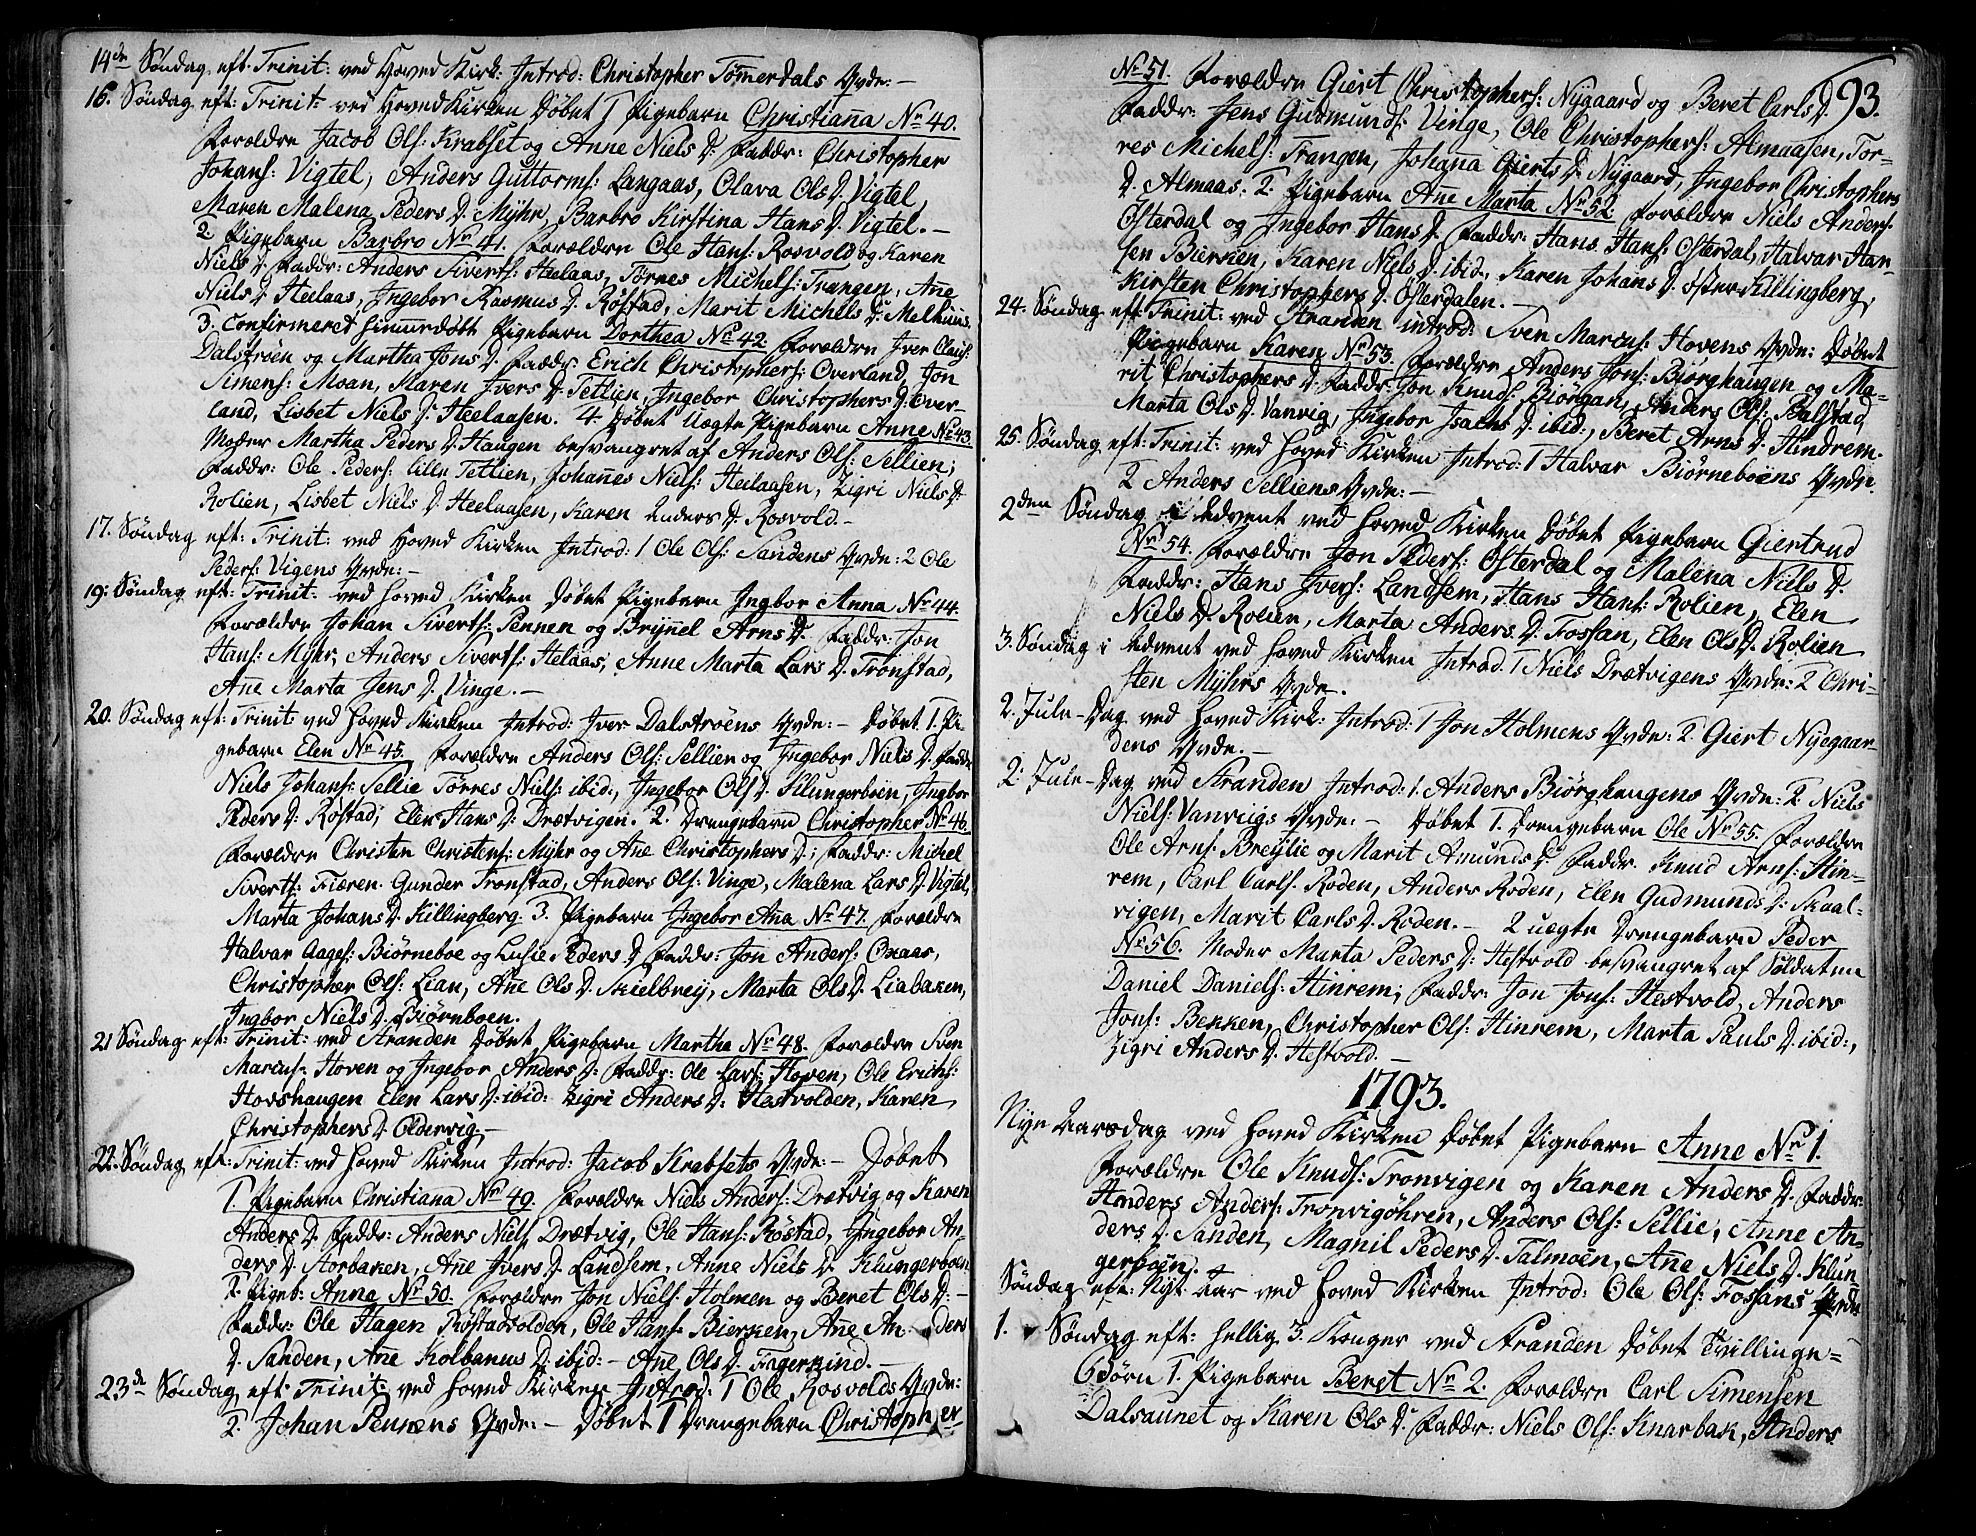 14de Søndag eft: Trinit: ved Hoved Kirk: Introd: Christopher Tømmerdals Qvde: –
16. Søndag eft: Trinit: ved Hoved Kirken Døbet 1 Pigebarn Christiana No 40.
Forældre Jacob Ols: Krabset og Anne Niels D: Faddr: Christopher
Johans: Vigtel, Anders Guttorms: Langaas, Olava Ols D. Vigtel,
Maren Malena Peders D: Myhr, Barbro Kirstina Hans D: Vigtel. –
2 Pigebarn Barbro No 41. Forældre Ole Hans: Rosvold og Karen
Niels D: Faddr: Anders Siverts: Heelaas, Tørres Michels: Trangen, Ane
Niels D. Heelaas, Ingebor Rasmus D. Røstad, Marit Michels D: Melhuus.
3. Confirmeret hiemmedøbt Pigebarn Dorthea No 42 Forældre Iver Claus:
Dalstrøen og Martha Jons D. Faddr: Erich Christophers: Overland, Jon
Simens: Moan, Maren Ivers D. Tetlien, Ingebor Christophers D: Over-
land, Lisbet Niels D. Heelaasen. 4. Døbet Uægte Pigebarn Anne No 43.
Moder Martha Peders D. Haugen besvangret af Anders Ols: Sellien;
Faddr: Ole Peders: lille Tetlien, Johañes Niels: Heilaasen, Zigri Niels D.
Rolien, Lisbet Niels D. Heelaasen, Karen Anders D. Rosvold. –
17. Søndag eft: Trinit: ved Hoved Kirken Introd: 1 Ole Ols: Sandens Qvde: 2 Ole
Peders: Vigens Qvde: –
19: Søndag eft: Trinit: ved Hoved Kirken Døbet Pigebarn Ingbor Anna No 44.
Forældre Johan Siverts: Pennen og Brynnel Arns D. Faddr: Jon
Hans: Myhr, Anders Siverts: Helaas, Anne Marta Lars D. Tronstad,
Añe Marta Jens D. Vinge. –
20. Søndag eft: Trinit: ved Hoved Kirken Introd: Iver Dalstrøens Qvde: – Døbet 1. Pi-
gebarn Elen No 45. Forældre Anders Ols: Sellien og Ingebor Niels D. Faddr:
Niels Johans: Sellie Tørres Niels: ibid:, Ingebor Ols D. Klungerboen, Ingbor
Peders D. Røstad, Elen Hans D. Drætvigen. 2. Drengebarn Christopher No 46.
Forældre Christen Christens: Myhr og Añe Christophers D; Faddr: Michel
Siverts: Fiæren. Gunder Tronstad, Anders Ols: Vinge, Malena Lars D. Vigtel,
Marta Johans D. Killingberg. 3. Pigebarn Ingebor Aña No 47. Forældre
Halvar Aages: Biørneboe og Lusie Peders D. Faddr: Jon Anders: Oxaas,
Christopher Ols: Lian, Añe Ols D. Skielbrey, Marta Ols D. Liabaken,
Ingbor Niels D. Biørnboen.
21 Søndag eft: Trinit: ved Stranden Døbet Pigebarn Martha No 48. Forældre Sven
Marcus: Hoven og Ingebor Anders D: Faddr: Ole Lars: Hoven, Ole Erichs:
Hovshaugen Elen Lars D. ibid: Zigri Anders D. Hestvolden, Karen
Christophers D. Oldervig. –
22. Søndag eft: Trinit: ved Hoved Kirken Introd: Jacob Krabsets Qvde: – Døbet
1. Pigebarn Christiana No 49. Forældre Niels Anders: Drætvig og Karen
Anders D. Faddr: Anders Niels: Drætvig, Ole Hans: Røstad, Ingebor An-
ders D. Storbaken, Añe Ivers D. Landsem, Anne Niels D. Klungerboen
2. Pigeb: Anna No 50. Forældre Jon Niels: Holmen og Beret Ols D. –
Faddr: Ole Hagen Røstadvolden, Ole Hans: Bierken, Añe Anders
D. Sanden, Añe Kolbanus D. ibid: – Añe Ols D. Fagerkind. –
23de Søndag eft: Trinit: ved Hoved Kirken Introd: 1 Ole Rosvolds Qvde:
2. Johan Pennens Qvde: – Døbet 1 Drengebarn Christopher
93.
No 51. Forældre Giert Christophers: Nygaard og Beret Carls D.
Faddr: Jens Gudmunds: Vinge, Ole Christophers: Almaasen, Tor-
res Michels: Trangen, Johaña Gierts D. Nygaard, Ingebor Christophers
D. Almaas: 2. Pigebarn Añe Marta No 52 Forældre Niels Anders:
Østerdal og Ingebor Hans D. Faddr: Hans Hans: Østerdal, Halvar Han-
sen Bierken, Karen Niels D. ibid:, Karen Johans D. Østre Killingberg,
Kirsten Christophers D. Østerdalen. –
24. Søndag eft: Trinit: ved Stranden introd: Sven Marcus: Hovens Qvde: Døbet
Pigebarn Karen No 53. Forældre Anders Jons: Biørghaugen og Ma-
rit Christophers D. Faddr: Jon Knuds: Biørgan, Anders Ols: Balstad,
Marta Ols D. Vanvig, Ingebor Isachs D. ibid:, Beret Arns D. Hindrem.
25. Søndag eft: Trinit: ved Hoved Kirken Introd: 1 Halvar Biørneboens Qvde.
2 Anders Selliens Qvde: –
2den Søndag i Advent ved Hoved Kirken Døbet Pigebarn Giertrud
No 54. Forældre Jon Peders: Østerdal og Malena Niels D.
Faddr: Hans Ivers: Landsem, Hans Hans: Rolien, Elen
Niels D. Rolien, Marta Anders D. Fossan, Elen Ols D. Rolien
3. Søndag i Advent ved Hoved Kirken Introd. 1 Niels Drætvigens Qvde: 2 Chri-
sten Myhrs Qvde.
2. Jule-Dag ved Hoved Kirk: Introd: 1 Jon Holmens Qvde: 2 Giert Nyegaar-
dens Qvde. –
2: Jule-Dag ved Stranden Introd: 1. Anders Biørghaugens Qvde: 2. Niels
Niels: Vanvigs Qvde: – Døbet 1. Drengebarn Ole No 55. Forældre
Ole Arns: Breylie og Marit Amunds D. Faddr. Knud Arns: Hin-
rem, Carl Carls. Roden, Anders Roden, Elen Gudmunds D: Skaal-
vigen, Marit Carls D. Roden. – 2 uægte Drengebarn Peder
No 56. Moder Marta Peders D: Hestvold besvangret af Soldaten
Daniel Daniels: Hinrem; Faddr: Jon Jons: Hestvold, Anders
Jons: Bekken, Christopher Ols: Hinrem, Marta Pauls D. ibid:,
Zigri Anders D. Hestvold. –
1793.
Nye Aarsdag ved Hoved Kirken Døbet Pigebarn Anne No 1.
Forældre Ole Knuds: Tronvigen og Karen Anders D. Faddr:
Anders Anders: Tronvigøhren, Anders Ols: Sellie, Anne An-
ders D. Sanden, Magnil Peders D. Talmoen, Añe Niels D. Klun-
gerboen.
Søndag eft: Nyt Aar ved Hoved Kirken Introd: Ole Ols: Fossans Qvde
1. Søndag eft: Hellig 3. Konger ved Stranden Døbet Tvillinge-
Børn 1. Pigebarn Beret No 2. Forældre Carl Simensen
Dalsaunet og Karen Ols D. Faddr: Niels Ols: Knarbak, Anders